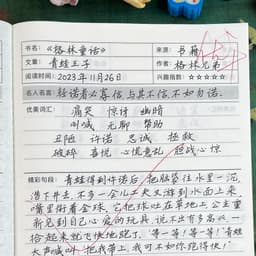 书名:《格林童话》
来源:书籍
文章:青蛙王子
作者:格林兄弟
阅读时间:2023年11月26日
兴趣指数:☆☆☆☆☆
名人名言:轻诺者必寡信,与其不信,不如勿诺。
优美词汇:
痛哭 惊讶 幽暗
叫喊 无聊 帮助
丑陋 许诺 忠诚 拯救
破碎 喜悦 心慌意乱 胆战心惊
精彩句段:青蛙得到许诺后,把脑袋往水里一沉,
潜下井去,不多一会儿工夫又游到水面上来
嘴里衔着金球,它把球吐在草地上,公主重
新见到自己心爱的玩具,说不出有多高兴,一
拾起来就飞快地跑了,“等一等!等一等!”青蛙
大声喊叫,“把我带上,我可不如你跑得快!”